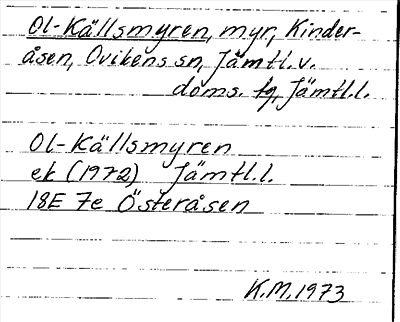 Ol-Källsmyren, myr, Kinder-
åsen, Ovikens sn, Jämtl.v.
doms. tg, Jämtl.l.
Ol-Källsmyren
ek (1972) Jämtl.l.
18E 7e Österåsen
K.M.1973